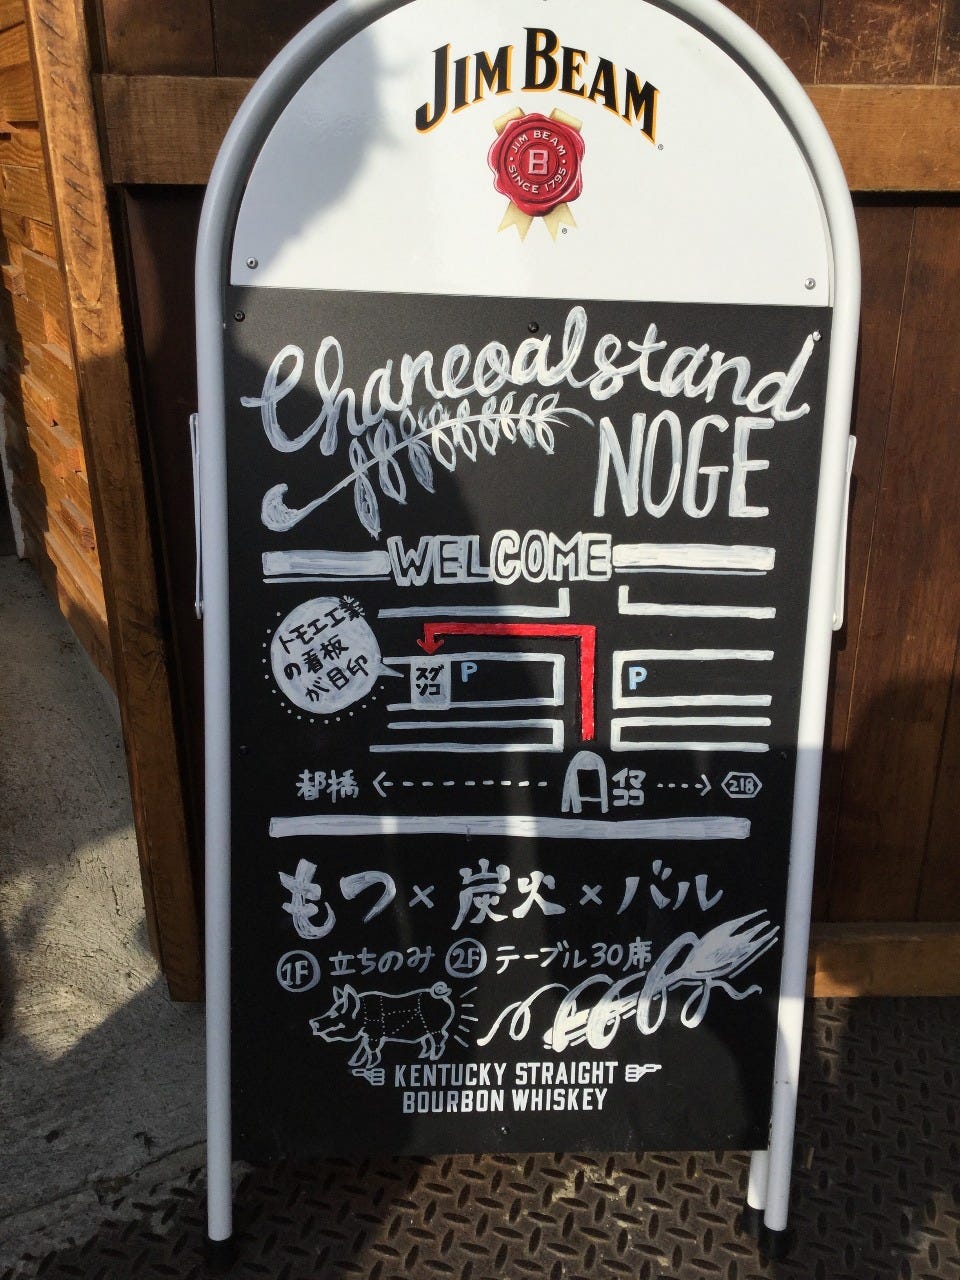 JIM BEAM
JIM BEAM
B
SINCE 1795
Charcoalstand
NOGE
WELCOME
トモエ工業
の看板
が目印
スグ
ソコ
P
P
都橋
イマ
ココ
218
もつ×炭火×バル
1F 立ちのみ 2F テーブル30席
KENTUCKY STRAIGHT
BOURBON WHISKEY